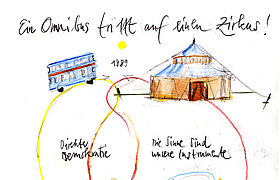 Ein Omnibus trifft auf einen Zirkus!
1989
Direkte
Demokratie
Die Sinne sind
unsere Instrumente